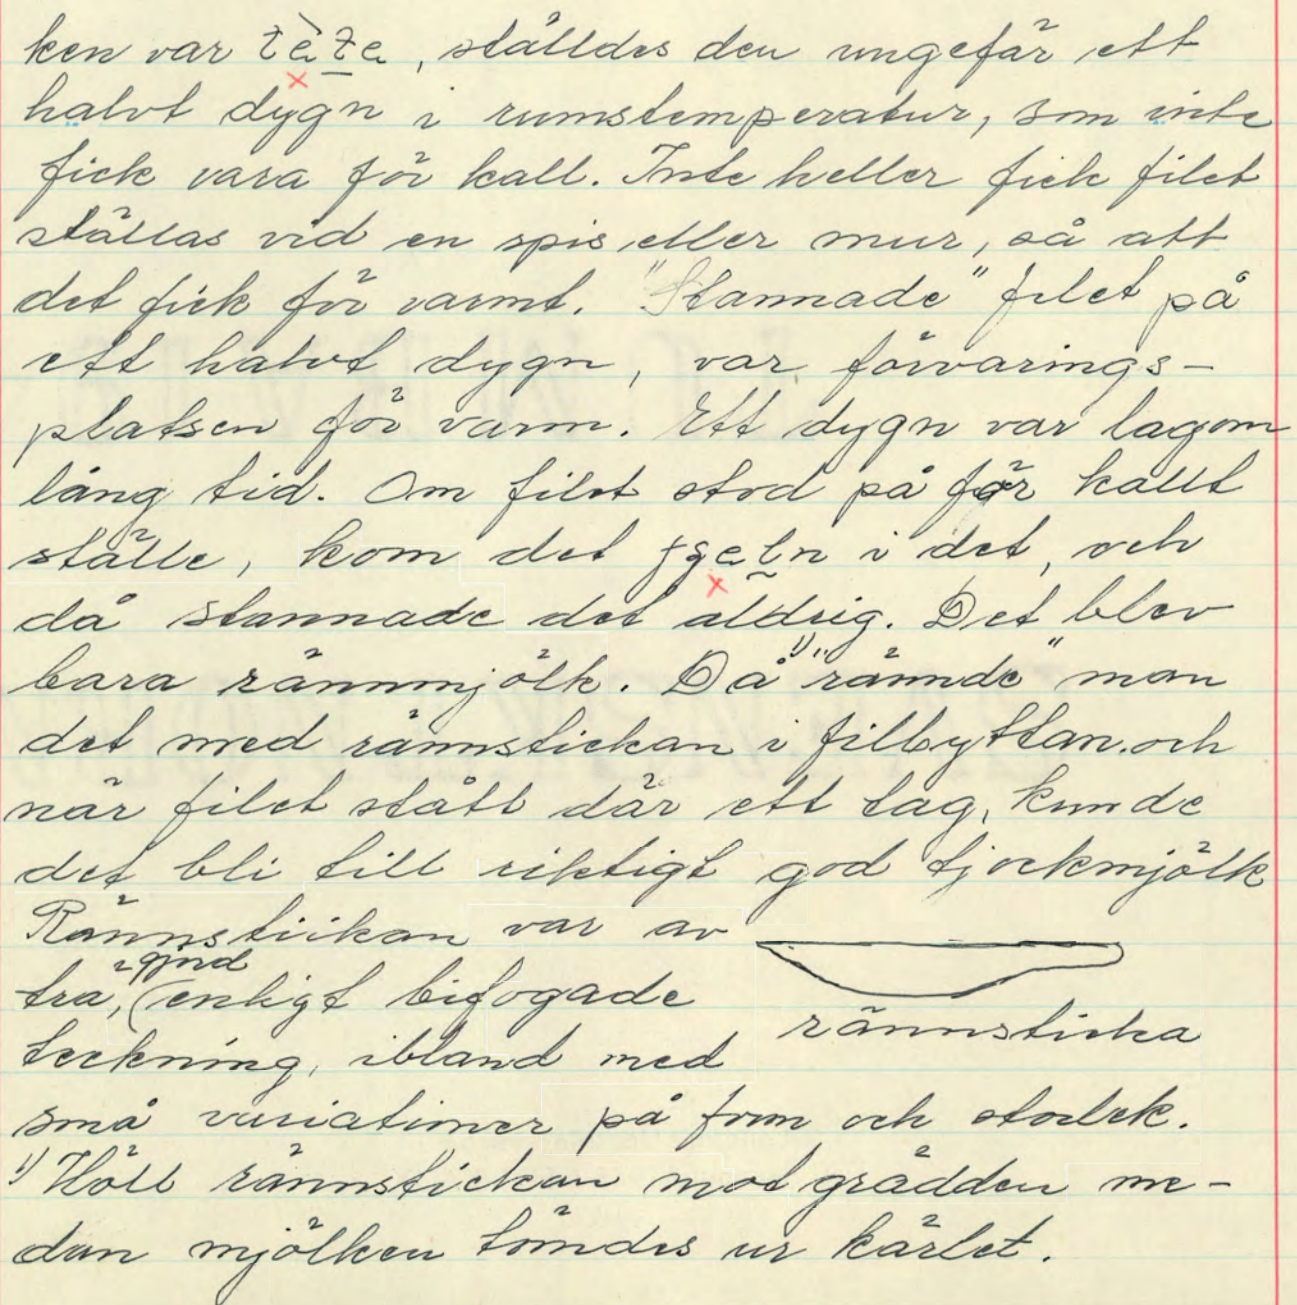 ken var tèta, ställdes den ungefär ett
halvt dygn i rumstemperatur, som inte
fick vara för kall. Inte heller fick filet
ställas vid en spis eller mur, så att
det fick för varmt. "Stannade" filet på
ett halvt dygn, var förvarings-
platsen för varm. Ett dygn var lagom
lång tid. Om filet stod på för kallt
ställe, kom det i det, och
då stannade det aldrig. Det blev
bara rännmjölk. Då 1) "rännde" man
det med rännstickan i filbyttan och
när filet stått där ett tag, kunde
det bli till riktigt god tjockmjölk
Rännstickan var av
trä, gjord enligt bifogade
teckning, ibland med
rännsticka
små variationer på form och storlek.
1) Höll rännstickan mot grädden me-
dan mjölken tömdes ur kärlet.